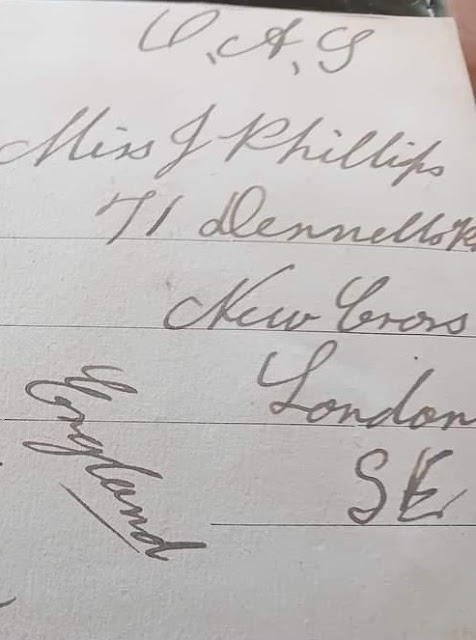 O.A.S
Miss J Phillips
71 Dennetts Rd
New Cross
London
SE
England